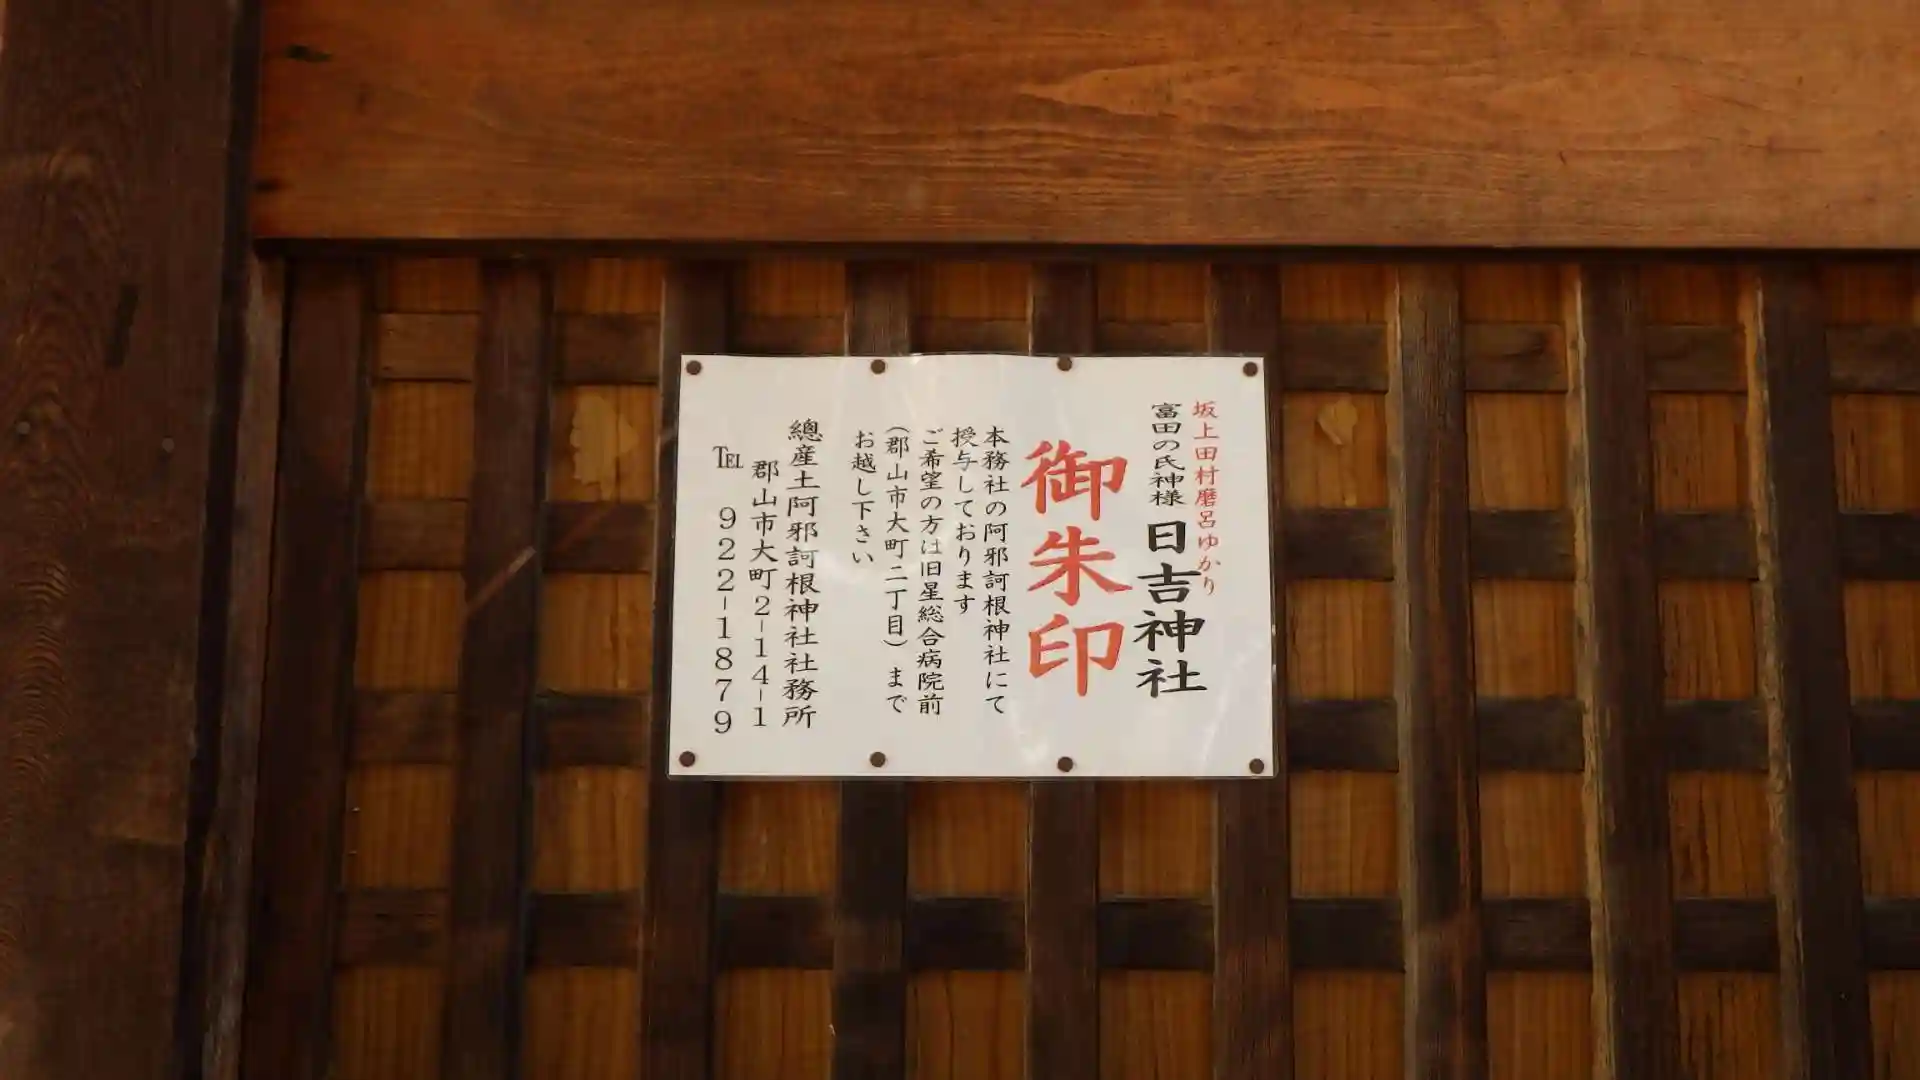 坂上田村磨呂ゆかり
富田の氏神様 日吉神社
御朱印
本務社の阿邪訶根神社にて
授与しております
ご希望の方は旧星総合病院前
(郡山市大町二丁目)まで
お越し下さい
總産土阿邪訶根神社社務所
郡山市大町2-14-1
TEL 922-1879